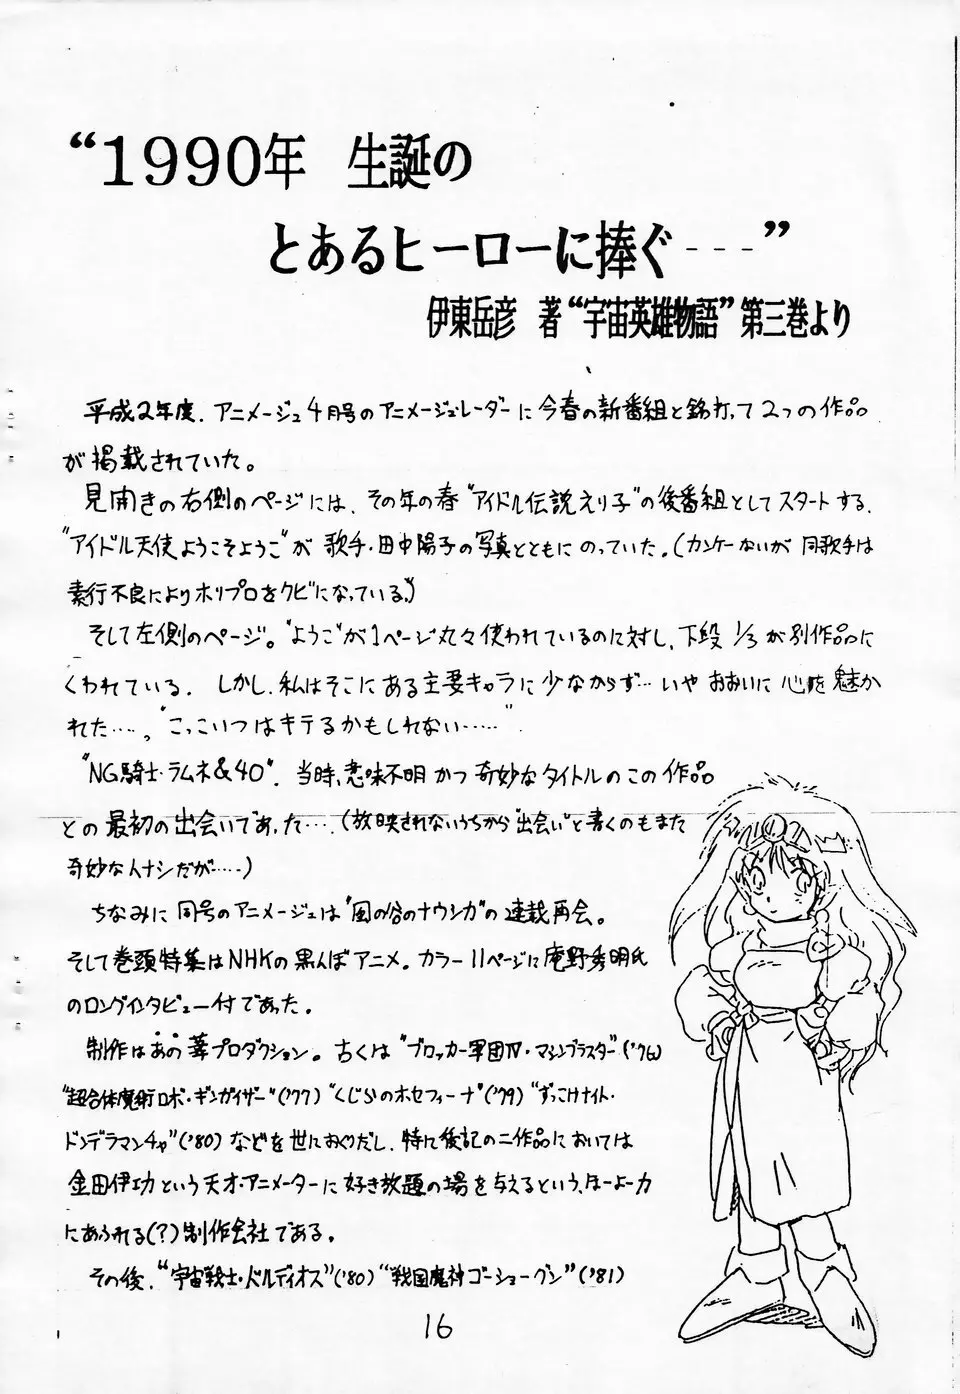 “1990年 生誕の
とあるヒーローに捧ぐ---”
伊東岳彦 著“宇宙英雄物語”第三巻より
平成2年度、アニメージュ4月号のアニメージュレーダーに今春の新番組と銘打って2つの作品
が掲載されていた。
見開きの右側のページには、その年の春“アイドル伝説えり子”の後番組としてスタートする、
“アイドル天使ようこそようこ”が歌手・田中陽子の写真とともにのっていた。(カンケーないが同歌手は
素行不良によりホリプロをクビになっている。)
そして左側のページ。“ようこ”が1ページ丸々使われているのに対し、下段1/3が別作品に
くわれている。しかし、私はそこにある主要キャラに少なからず…いやおおいに心を魅か
れた……。“こっこいつはキテるかもしれない……”
“NG騎士・ラムネ&40”。当時、意味不明かつ奇妙なタイトルのこの作品
との最初の出会いであった……。(放映されないうちから“出会い”と書くのもまた
奇妙なハナシだが……)
ちなみに同号のアニメージュは“風の谷のナウシカ”の連載再会。
そして巻頭特集はNHKの黒んぼアニメ。カラー11ページに庵野秀明氏
のロングインタビュー付であった。
制作はあの葦プロダクション。古くは“ブロッカー軍団Ⅳ・マシンブラスター”('76)
“超合体魔術ロボ・ギンガイザー”('77)“くじらのホセフィーナ”('79)“ずっこけナイト・
ドンデラマンチャ”('80)などを世におくりだし、特に後記の二作品においては
金田伊功という天才アニメーターに好き放題の場を与えるという、ほーよー力
にあふれる(?)制作会社である。
その後、“宇宙戦士・バルディオス”('80)“戦国魔神ゴーショーグン”('81)
16